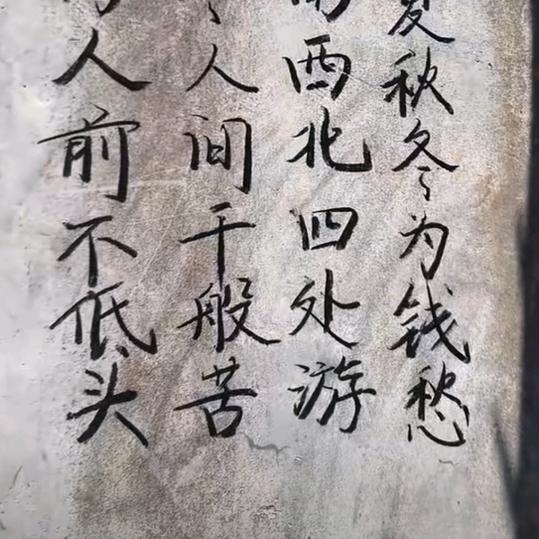 夏秋冬为钱愁
西北四处游
人间千般苦
人前不低头